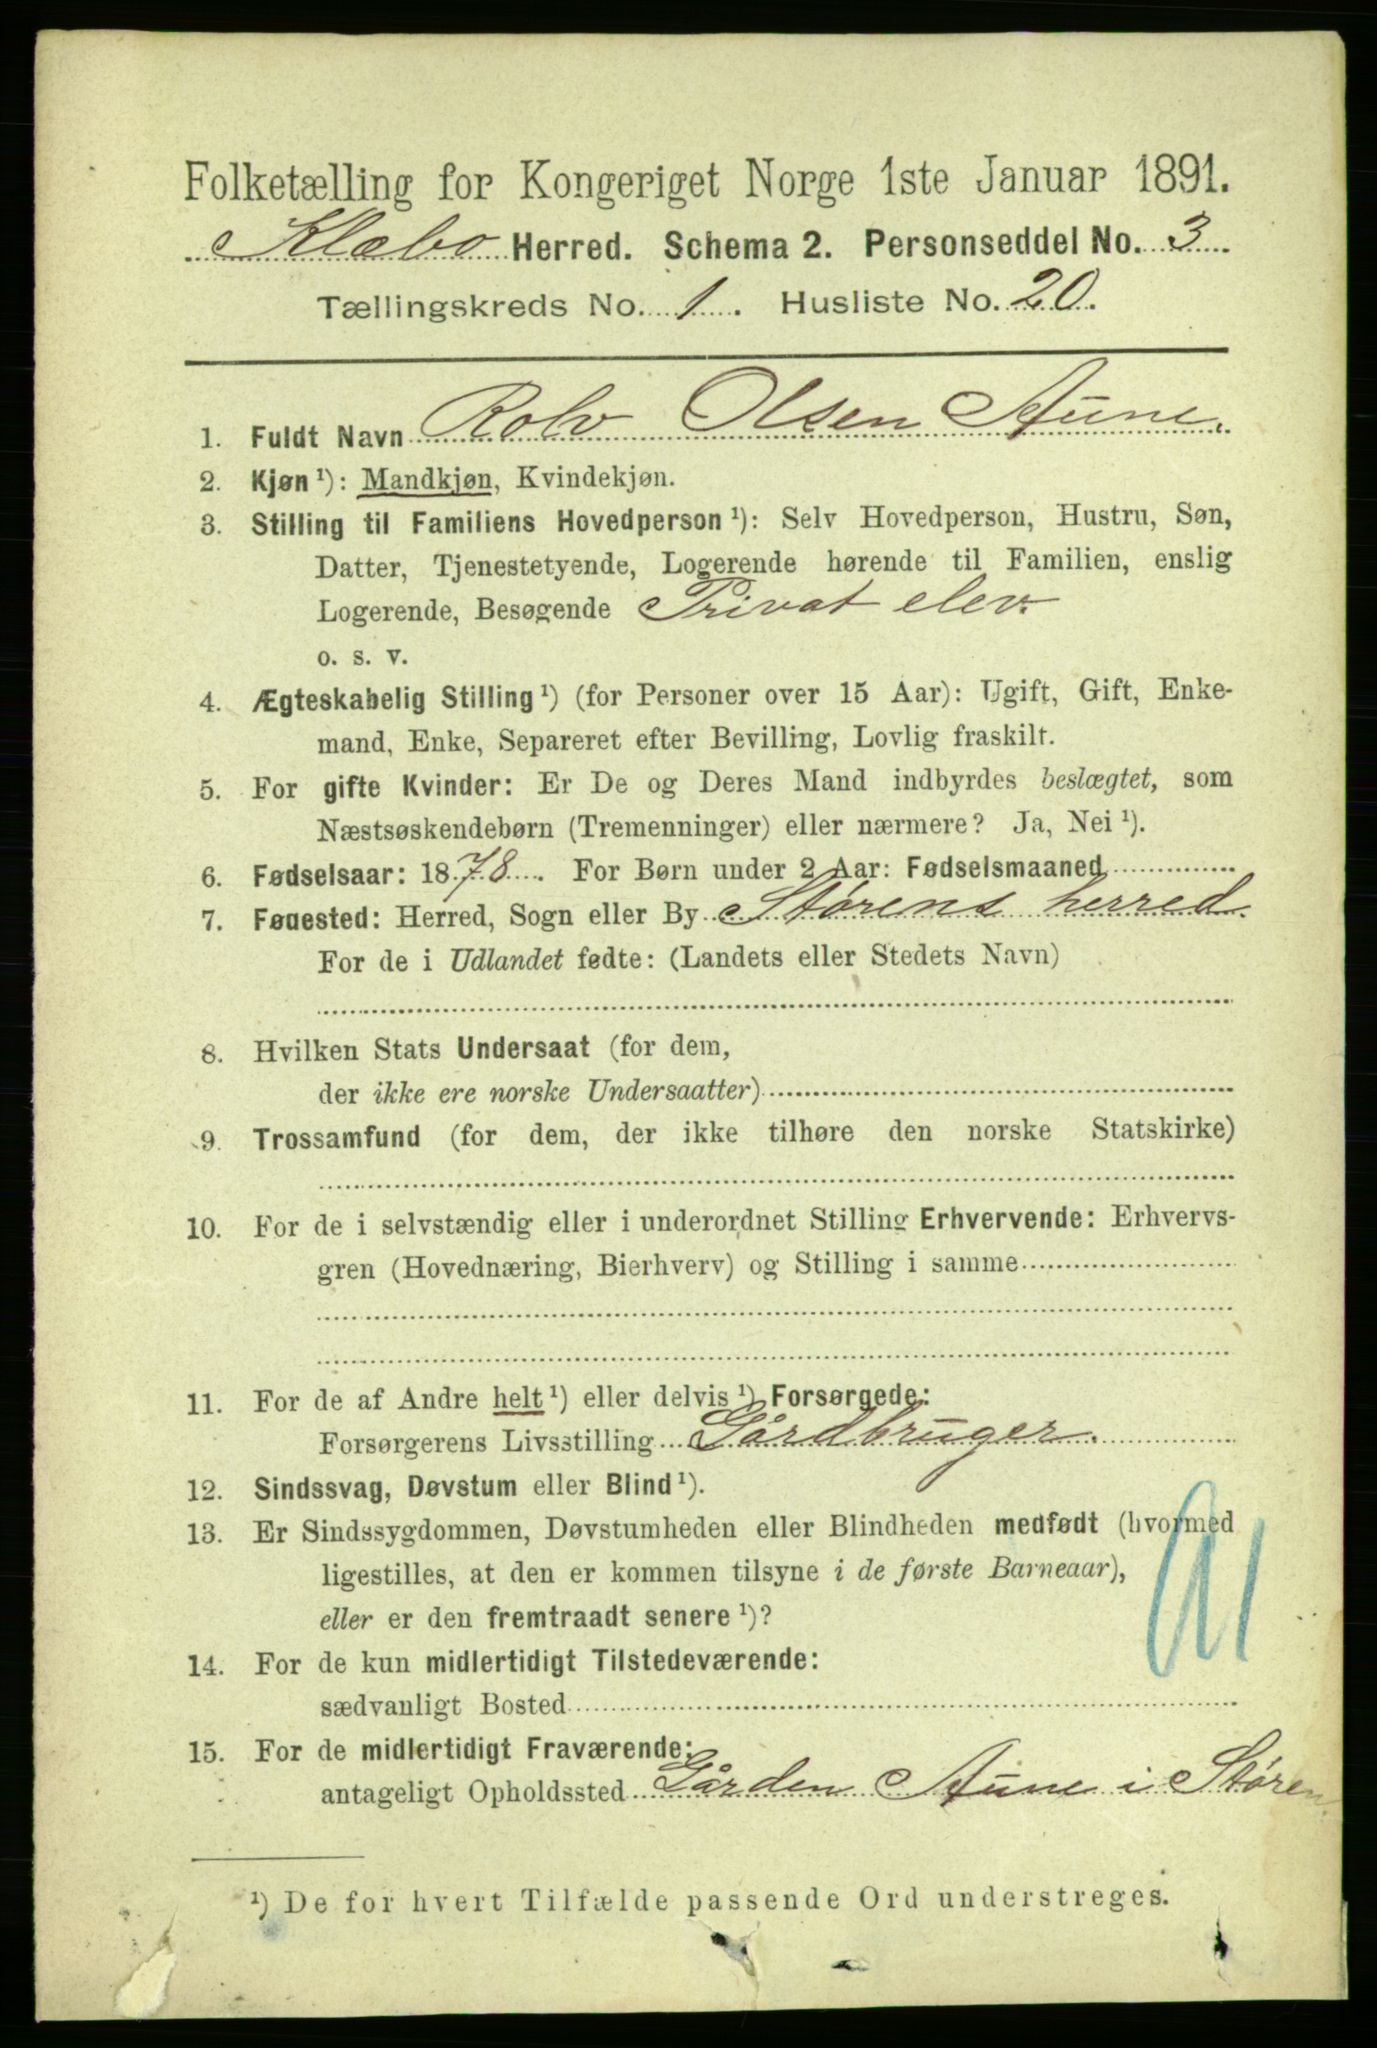 Folketælling for Kongeriget Norge 1ste Januar 1891.
Klæbo Herred. Schema 2. Personseddel No. 3
Tællingskreds No. 1. Husliste No. 20.
1. Fuldt Navn Rolv Olsen Aune.
2. Kjøn ¹): Mandkjøn, Kvindekjøn.
3. Stilling til Familiens Hovedperson ¹): Selv Hovedperson, Hustru, Søn,
Datter, Tjenestetyende, Logerende hørende til Familien, enslig
Logerende, Besøgende Privat elev.
o. s. v.
4. Ægteskabelig Stilling ¹) (for Personer over 15 Aar): Ugift, Gift, Enke-
mand, Enke, Separeret efter Bevilling, Lovlig fraskilt.
5. For gifte Kvinder: Er De og Deres Mand indbyrdes beslægtet, som
Næstsøskendebørn (Tremenninger) eller nærmere? Ja, Nei ¹).
6. Fødselsaar: 1878. For Børn under 2 Aar: Fødselsmaaned
7. Føuested: Herred, Sogn eller By Størens herred.
For de i Udlandet fødte: (Landets eller Stedets Navn)
8. Hvilken Stats Undersaat (for dem,
der ikke ere norske Undersaatter)
9. Trossamfund (for dem, der ikke tilhøre den norske Statskirke)
10. For de i selvstændig eller i underordnet Stilling Erhvervende: Erhvervs-
gren (Hovednæring, Bierhverv) og Stilling i samme
11. For de af Andre helt ¹) eller delvis ¹) Forsørgede:
Forsørgerens Livsstilling Gårdbruger.
12. Sindssvag, Døvstum eller Blind ¹).
13. Er Sindssygdommen, Døvstumheden eller Blindheden medfødt (hvormed
ligestilles, at den er kommen tilsyne i de første Barneaar),
eller er den fremtraadt senere ¹)?
14. For de kun midlertidigt Tilstedeværende:
sædvanligt Bosted
15. For de midlertidigt Fraværende:
antageligt Opholdssted Gården Aune i Støren.
¹) De for hvert Tilfælde passende Ord understreges.